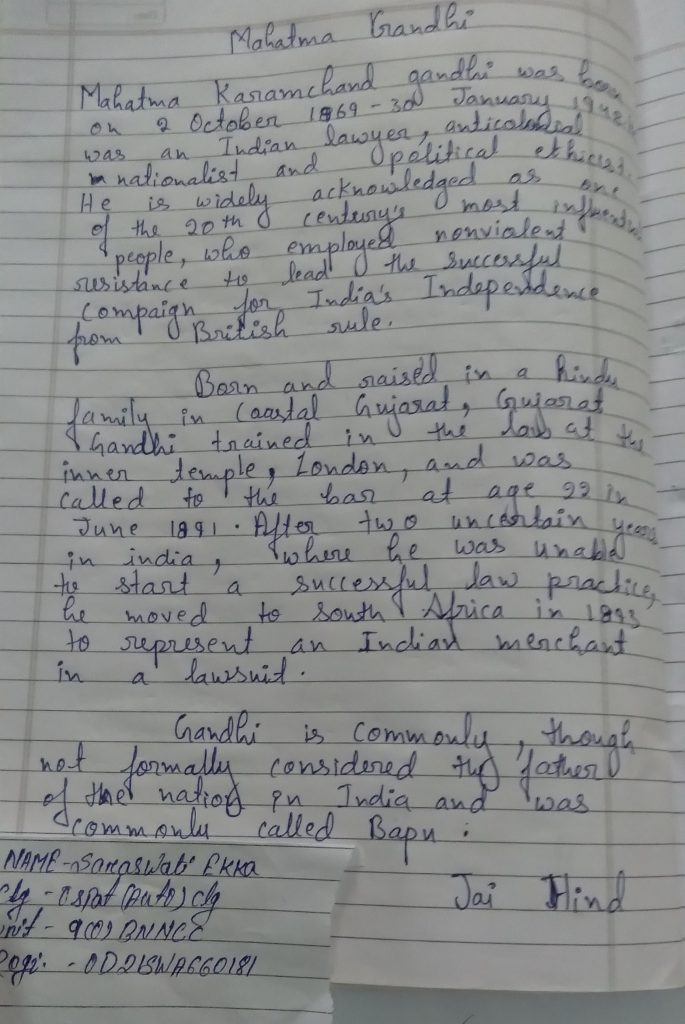 Mahatma Gandhi
Mahatma Karamchand gandhi was born
on 2 October 1869 - 30 January 1948
was an Indian lawyer, anticolonial
nationalist and political ethicist.
He is widely acknowledged as one
of the 20th centeury's most influential
people, who employed nonvialent
resistance to lead the successful
Compaign for India's Independence
from British rule.
Born and raised in a hindu
family in Coastal Gujarat, Gujarat
Gandhi trained in the law at the
inner temple, London, and was
called to the bar at age 22 in
June 1891. After two uncertain years
in india, where he was unable
to start a successful law practice,
he moved to south Africa in 1893
to represent an Indian merchant
in a lawsuit.
Gandhi is commonly, though
not formally considered the father
of the nation in India and was
commonly called Bapu.
Jai Hind
NAME - Saraswati EKKA
clg - Ispat (Auto) clg
unit - 9(O) BNNCC
Regi. - OD21SWA660181